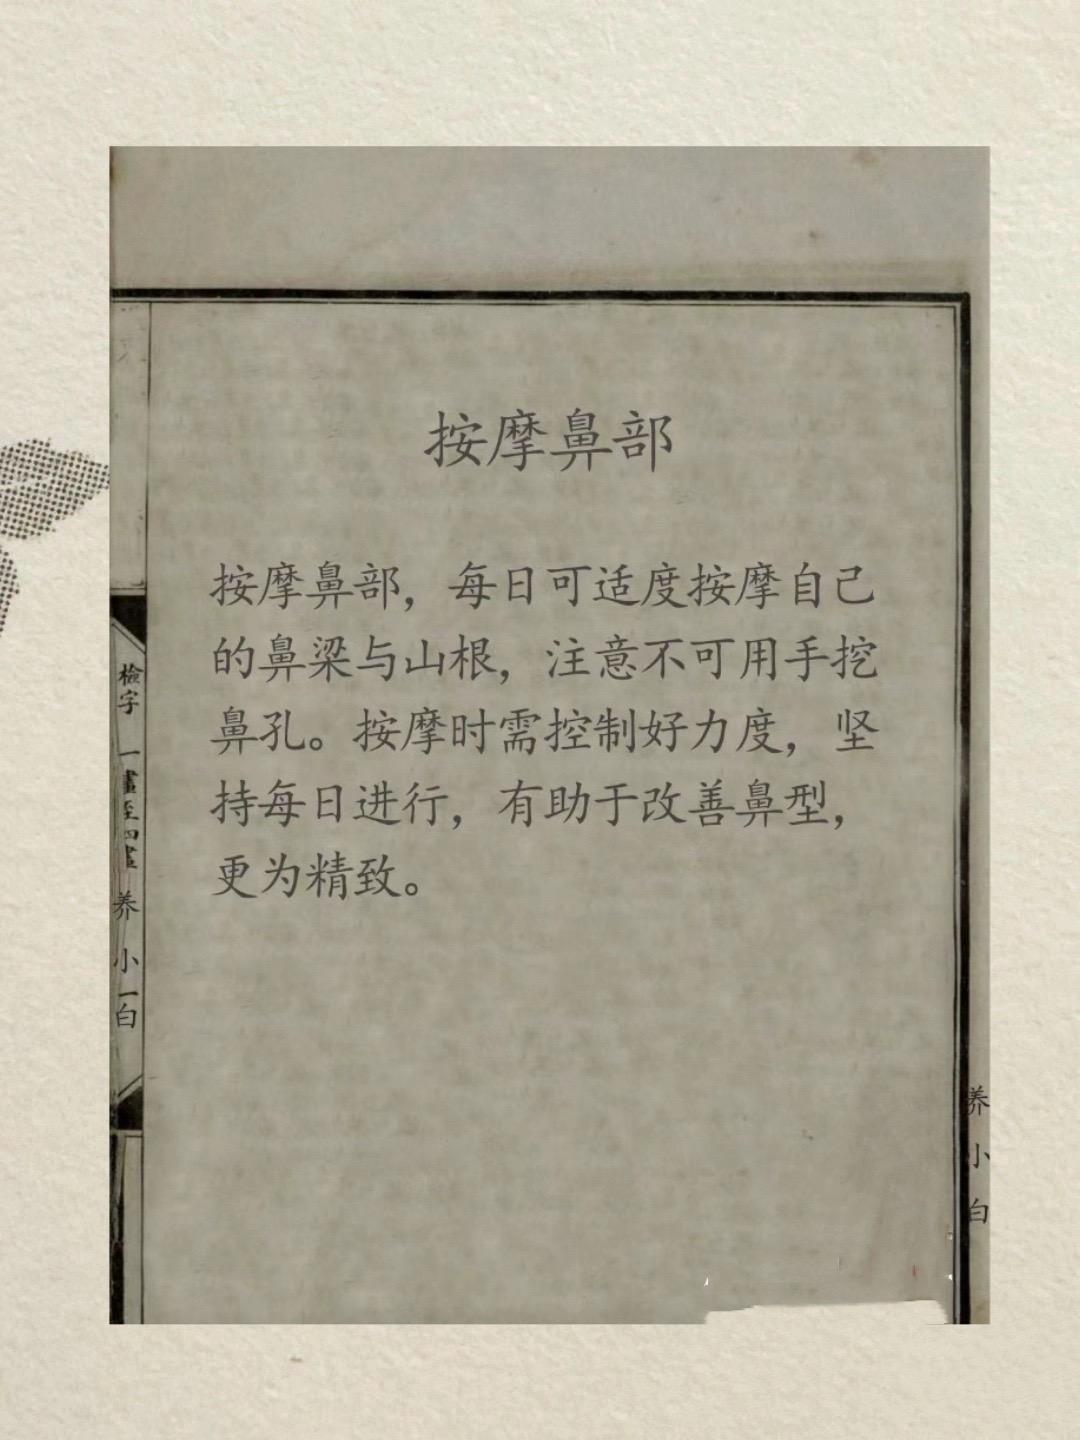 按摩鼻部
按摩鼻部，每日可适度按摩自己
的鼻梁与山根，注意不可用手挖
鼻孔。按摩时需控制好力度，坚
持每日进行，有助于改善鼻型，
更为精致。
檢字
一畫至四畫
养小一白
养小白